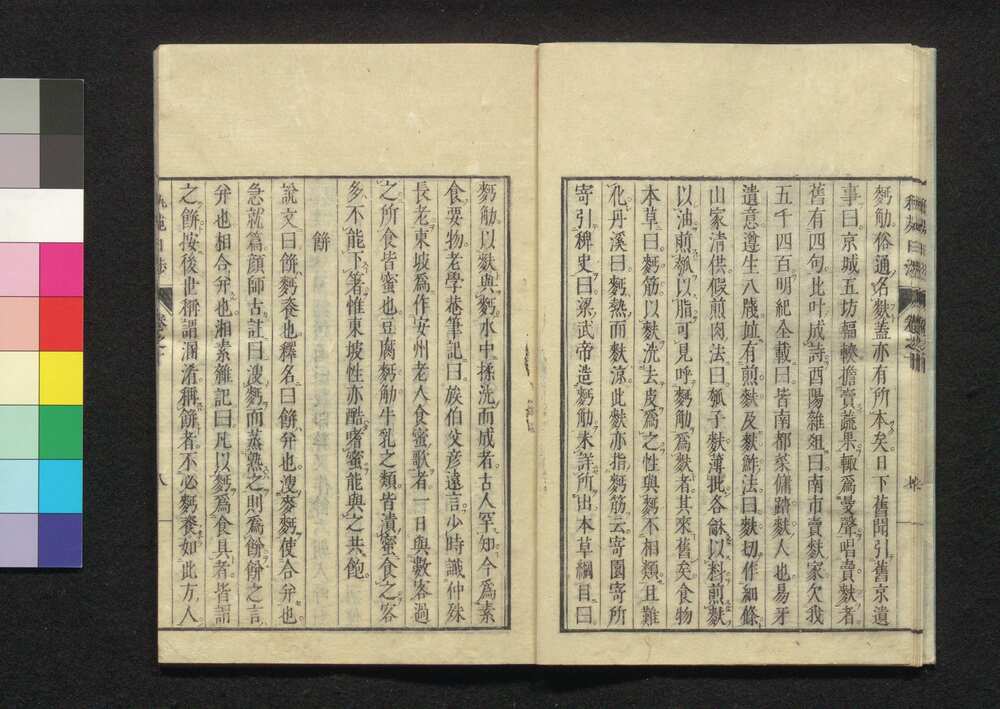 麪觔俗通名麩蓋亦有所本矣日下舊聞引舊京遺
事曰京城五坊輻轑擔賣蔬果輒爲曼聲唱賣麩者
舊有四句比叶成詩酉陽雜俎曰南市賣麩家欠我
五千四百明紀全載曰皆南都菜傭踏麩人也易牙
遺意遵生八牋並有煎麩及麩鮓法曰麩切作細條
山家清供假煎肉法曰瓠子麩薄批各龢以料煎麩
以油煎瓠以脂可見呼麪觔爲麩者其來舊矣食物
本草曰麪筋以麩洗去皮爲之性與麪不相類且難
化丹溪曰麪熱而麩涼此麩亦指麪筋云寄園寄所
寄引稗史曰梁武帝造麪觔未詳所出本草綱目曰
麪觔以麩與麪水中揉洗而成者古人罕知今爲素
食要物老學菴筆記曰族伯父彦遠言少時識仲殊
長老東坡爲作安州老人食蜜歌者一日與數客過
之所食皆蜜也豆腐麪觔牛乳之類皆漬蜜食之客
多不能下箸惟東坡性亦酷嗜蜜能與之共飽
餅
說文曰餅麪餈也釋名曰餅并也溲麥麪使合并也
急就篇顔師古註曰溲麪而蒸熟之則爲餅餅之言
并也相合并也湘素雜記曰凡以麪爲食具者皆謂
之餅按後世稱謂溷淆稱餅者不必麪餈如此方人
八